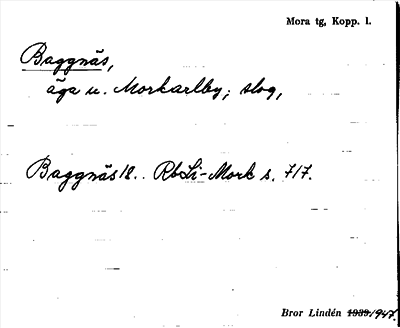 Mora tg, Kopp. l.
Baggnäs,
äga u. Morkarlby; slog,
Baggnäs 18.. RbLi-Mork s. 717.
Bror Lindén 1939/1947.